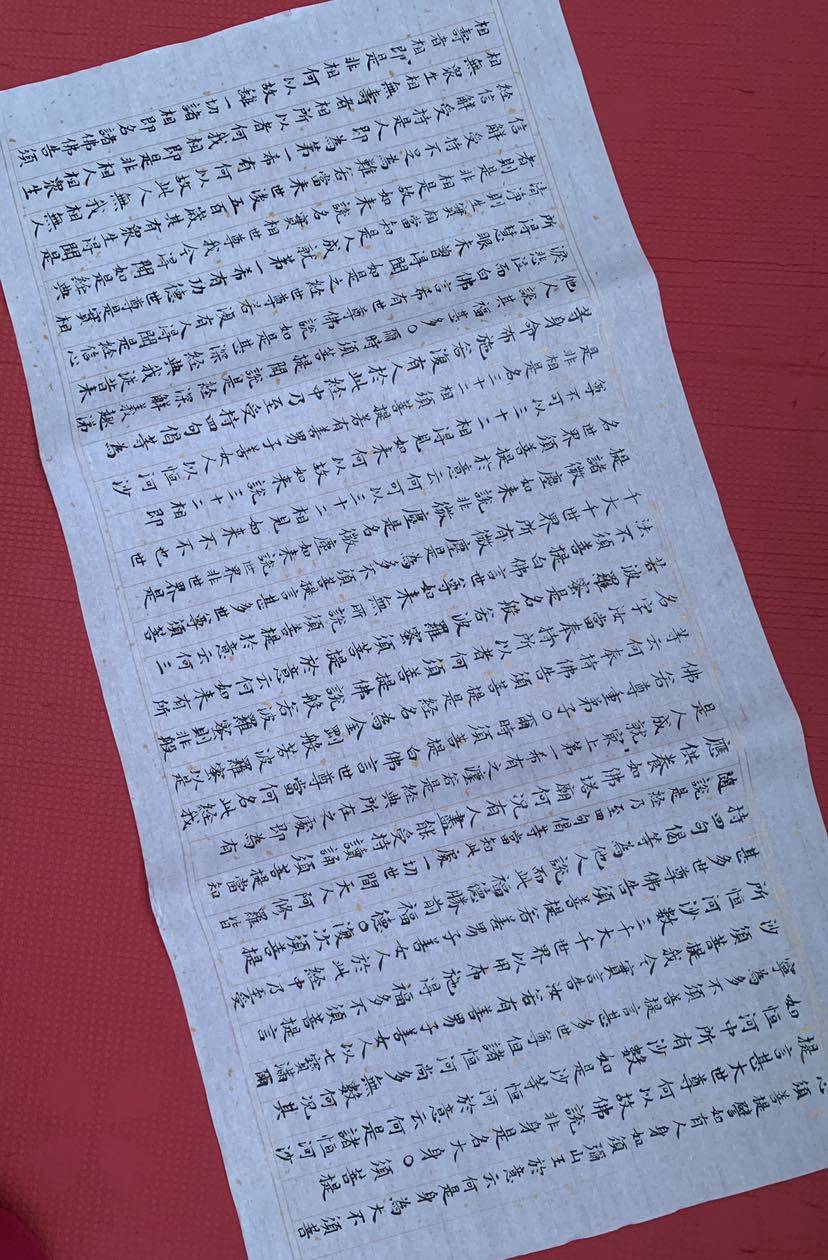 心須菩提譬如有人身如須彌山王於意云何是身為大不須菩
提言甚大世尊何以故佛說非身是名大身○須菩提
如恒河中所有沙數如是沙等恒河於意云何是諸恒河沙
寧為多不須菩提言甚多世尊但諸恒河尚多無數何況其
沙須菩提我今實言告汝若有善男子善女人以七寶滿爾
所恒河沙數三千大千世界以用布施得福多不須菩提言
甚多世尊佛告須菩提若善男子善女人於此經中乃至受
持四句偈等為他人說而此福德勝前福德○復次須菩提
隨說是經乃至四句偈等當知此處一切世間天人阿修羅皆
應供養如佛塔廟何況有人盡能受持讀誦須菩提當知
是人成就最上第一希有之法若是經典所在之處即為有
佛若尊重弟子○爾時須菩提白佛言世尊當何名此經我
等云何奉持佛告須菩提是經名為金剛般若波羅蜜以是
名字汝當奉持所以者何須菩提佛說般若波羅蜜則非般
若波羅蜜是名般若波羅蜜須菩提於意云何如來有所
法不須菩提白佛言世尊如來無所說須菩提於意云何三
千大千世界所有微塵是為多不須菩提言甚多世尊須菩
提諸微塵如來說非微塵是名微塵如來說世界非世界是
名世界須菩提於意云何可以三十二相見如來不不也世
尊不可以三十二相得見如來何以故如來說三十二相即
是非相是名三十二相須菩提若有善男子善女人以恒河沙
等身命布施若復有人於此經中乃至受持四句偈等為
他人說其福甚多○爾時須菩提聞說是經深解義趣涕
淚悲泣而白佛言希有世尊佛說如是甚深經典我從昔來
所得慧眼未曾得聞如是之經世尊若復有人得聞是經信心
清淨則生實相當知是人成就第一希有功德世尊是實相
者則是非相是故如來說名實相世尊我今得聞如是經典
信解受持不足為難若當來世後五百歲其有眾生得聞是
經信解受持是人即為第一希有何以故此人無我相無人
相無眾生相無壽者相所以者何我相即是非相人相眾生
相壽者相即是非相何以故離一切諸相即名諸佛佛告須